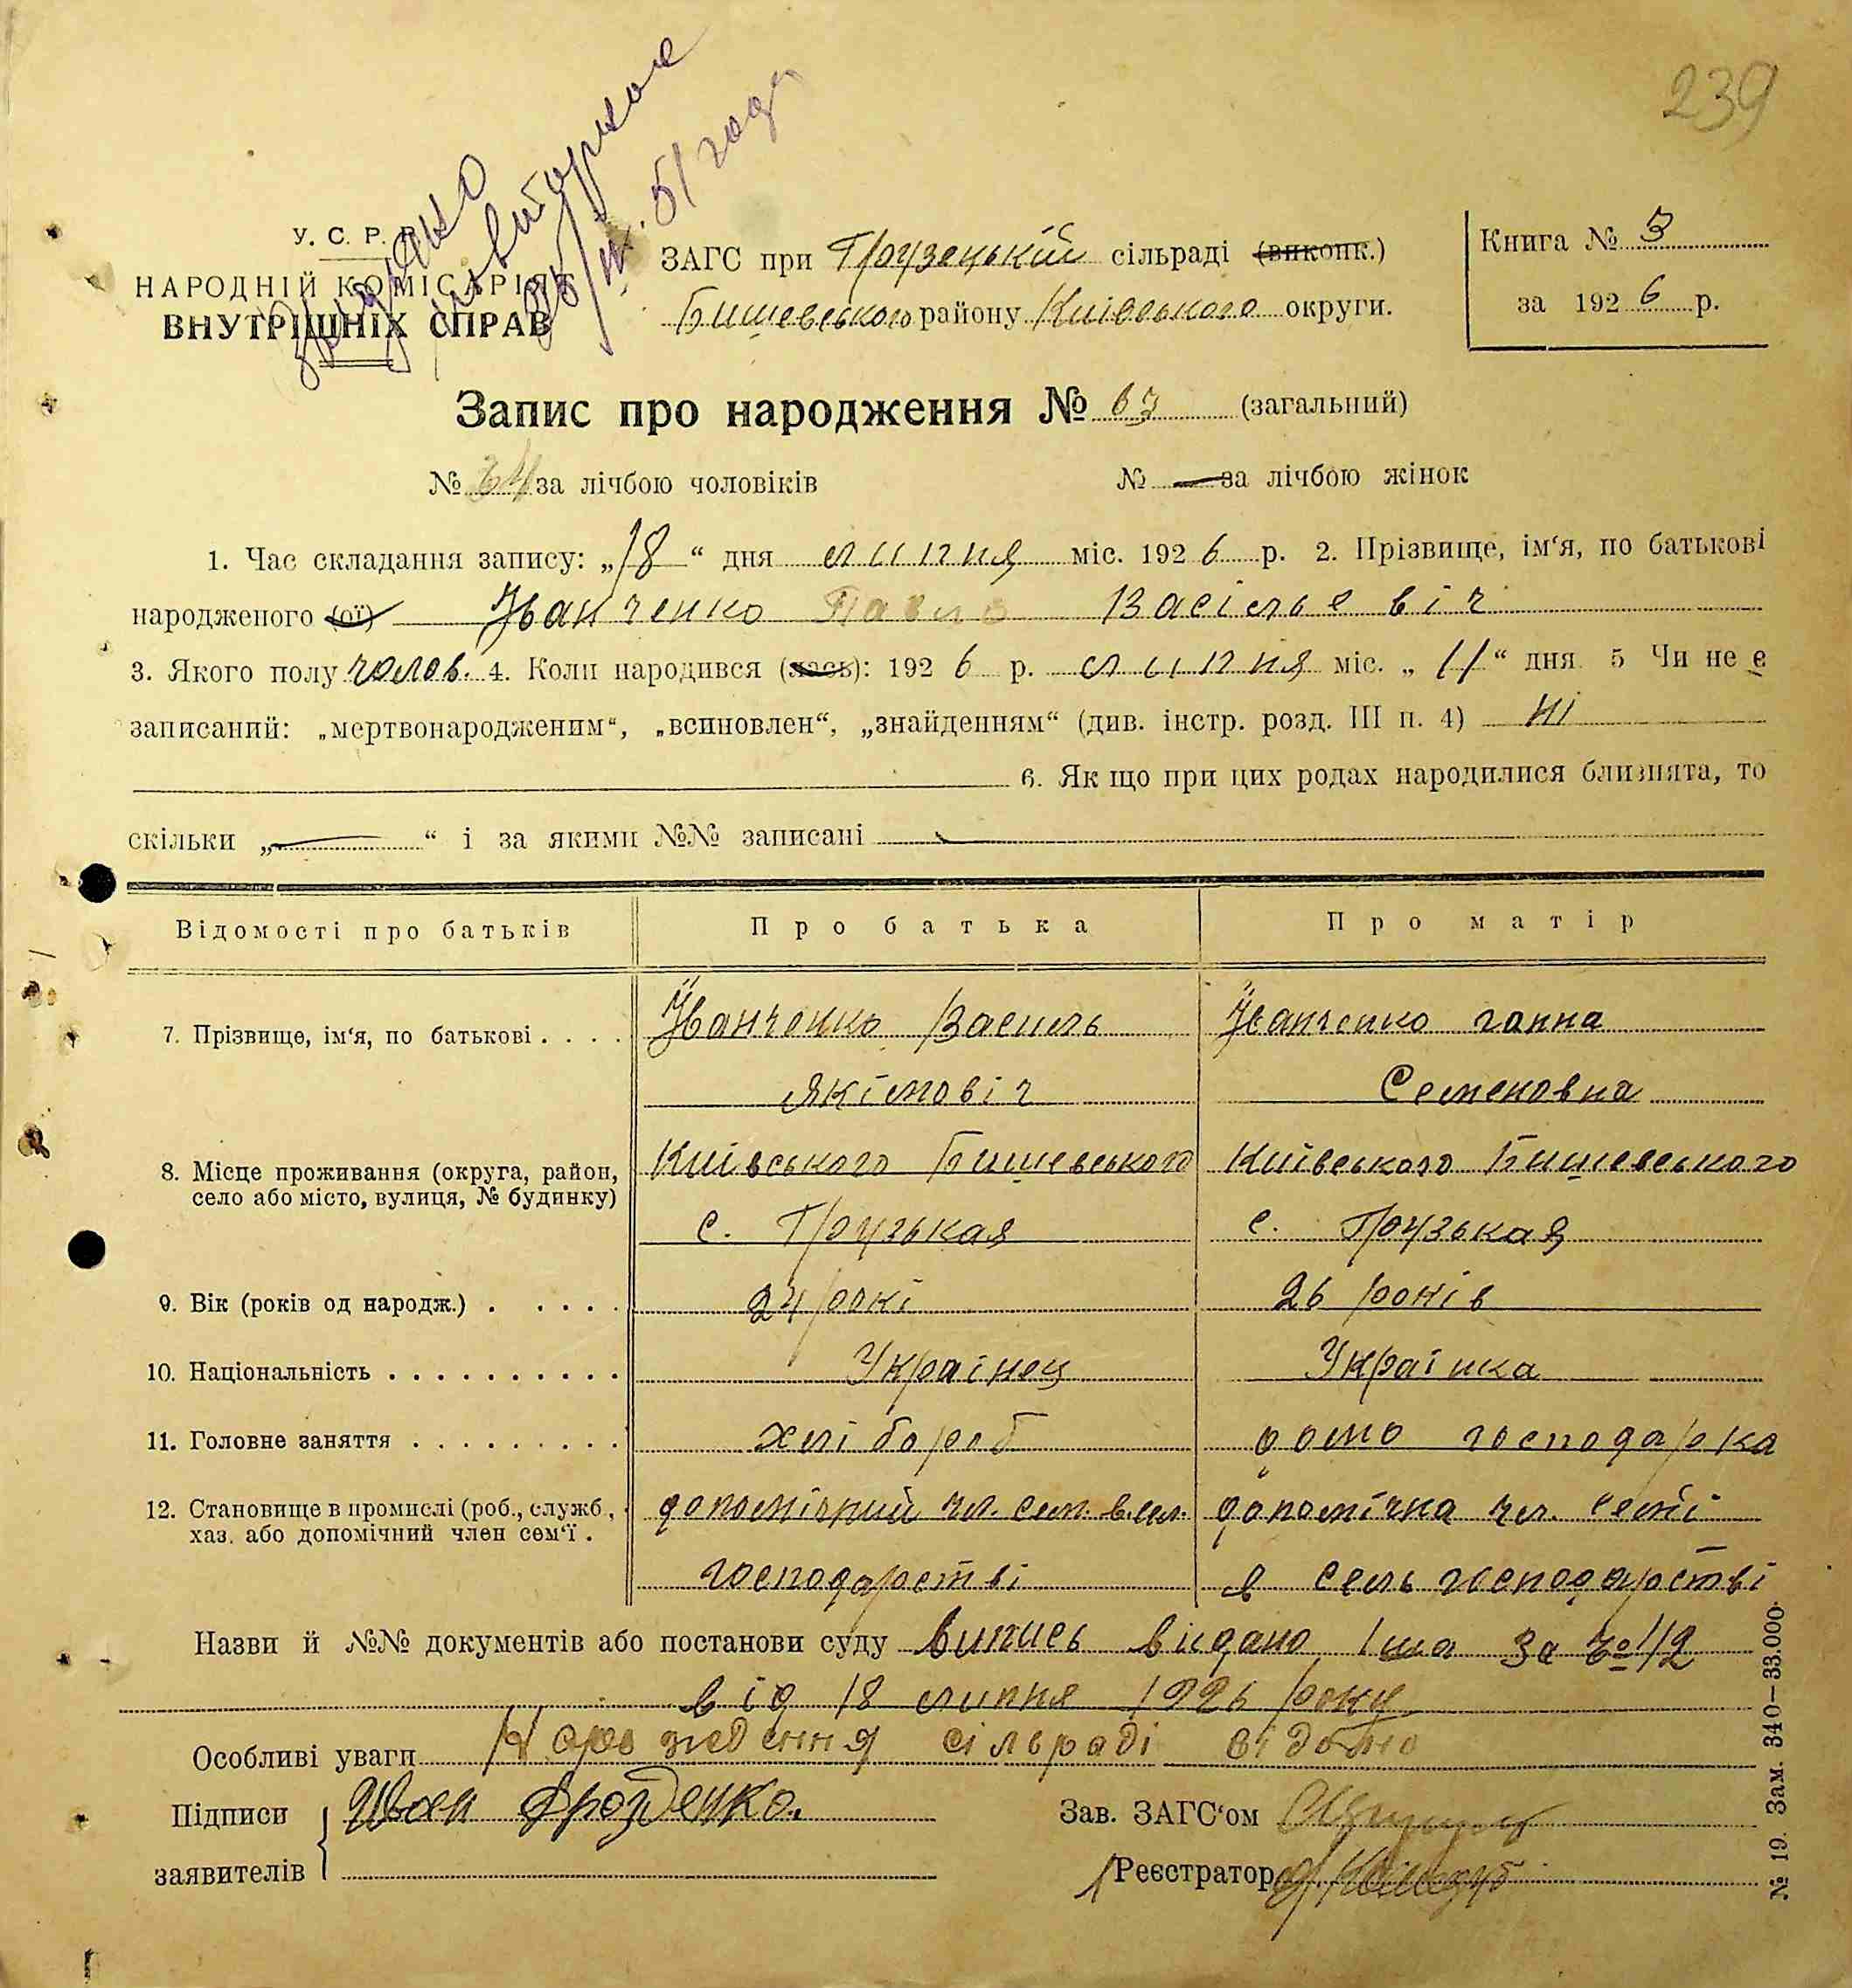 239
У. С. Р. Р.
НАРОДНІЙ КОМІСАРІЯТ
ВНУТРІШНІХ СПРАВ
Выдано
повторное
26/III. 51 года
ЗАГС при Грузецькій сільраді (виконк.)
Бишевського району Київського округи.
Книга № 3
за 1926 р.
Запис про народження № 63 (загальний)
№ 34 за лічбою чоловіків № — за лічбою жінок
1. Час складання запису: „18“ дня липня міс. 1926 р. 2. Прізвище, ім‘я, по батькові
народженого (ої) Іванченко Павло Васільевіч
3. Якого полу чолов. 4. Коли народився (лась): 1926 р. липня міс. „11“ дня 5 Чи не є
записаний: „мертвонародженим“, „всиновлен“, „знайденням“ (див. інстр. розд. III п. 4) ні
6. Як що при цих родах народилися близнята, то
скільки „—“ і за якими №№ записані —
Відомості про батьків Про батька Про матір
7. Прізвище, ім‘я, по батькові . . . . Іванченко Василь Іванченко ганна
Якімовіч Семеновна
8. Місце проживання (округа, район, Київського Бишевського Київського Бишевського
село або місто, вулиця, № будинку)
с. Грузькая с. Грузькая
9. Вік (років од народж.) . . . . . 24 рокі 26 років
10. Національність . . . . . . . . . . Українец Українка
11. Головне заняття . . . . . . . . . хлібороб домо господарка
12. Становище в промислі (роб., служб., допомічний чл. сем. в.сл. допомічна чл. семї
хаз. або допомічний член сем‘ї .
господарстві в сель господарстві
Назви й №№ документів або постанови суду випись видано за № 112
від 18 липня 1926 року
Особливі уваги Народження сільраді відомо
Підписи Иван Дрозденко. Зав. ЗАГС‘ом
заявителів Реєстратор
№ 19. Зам. 340—33.000.